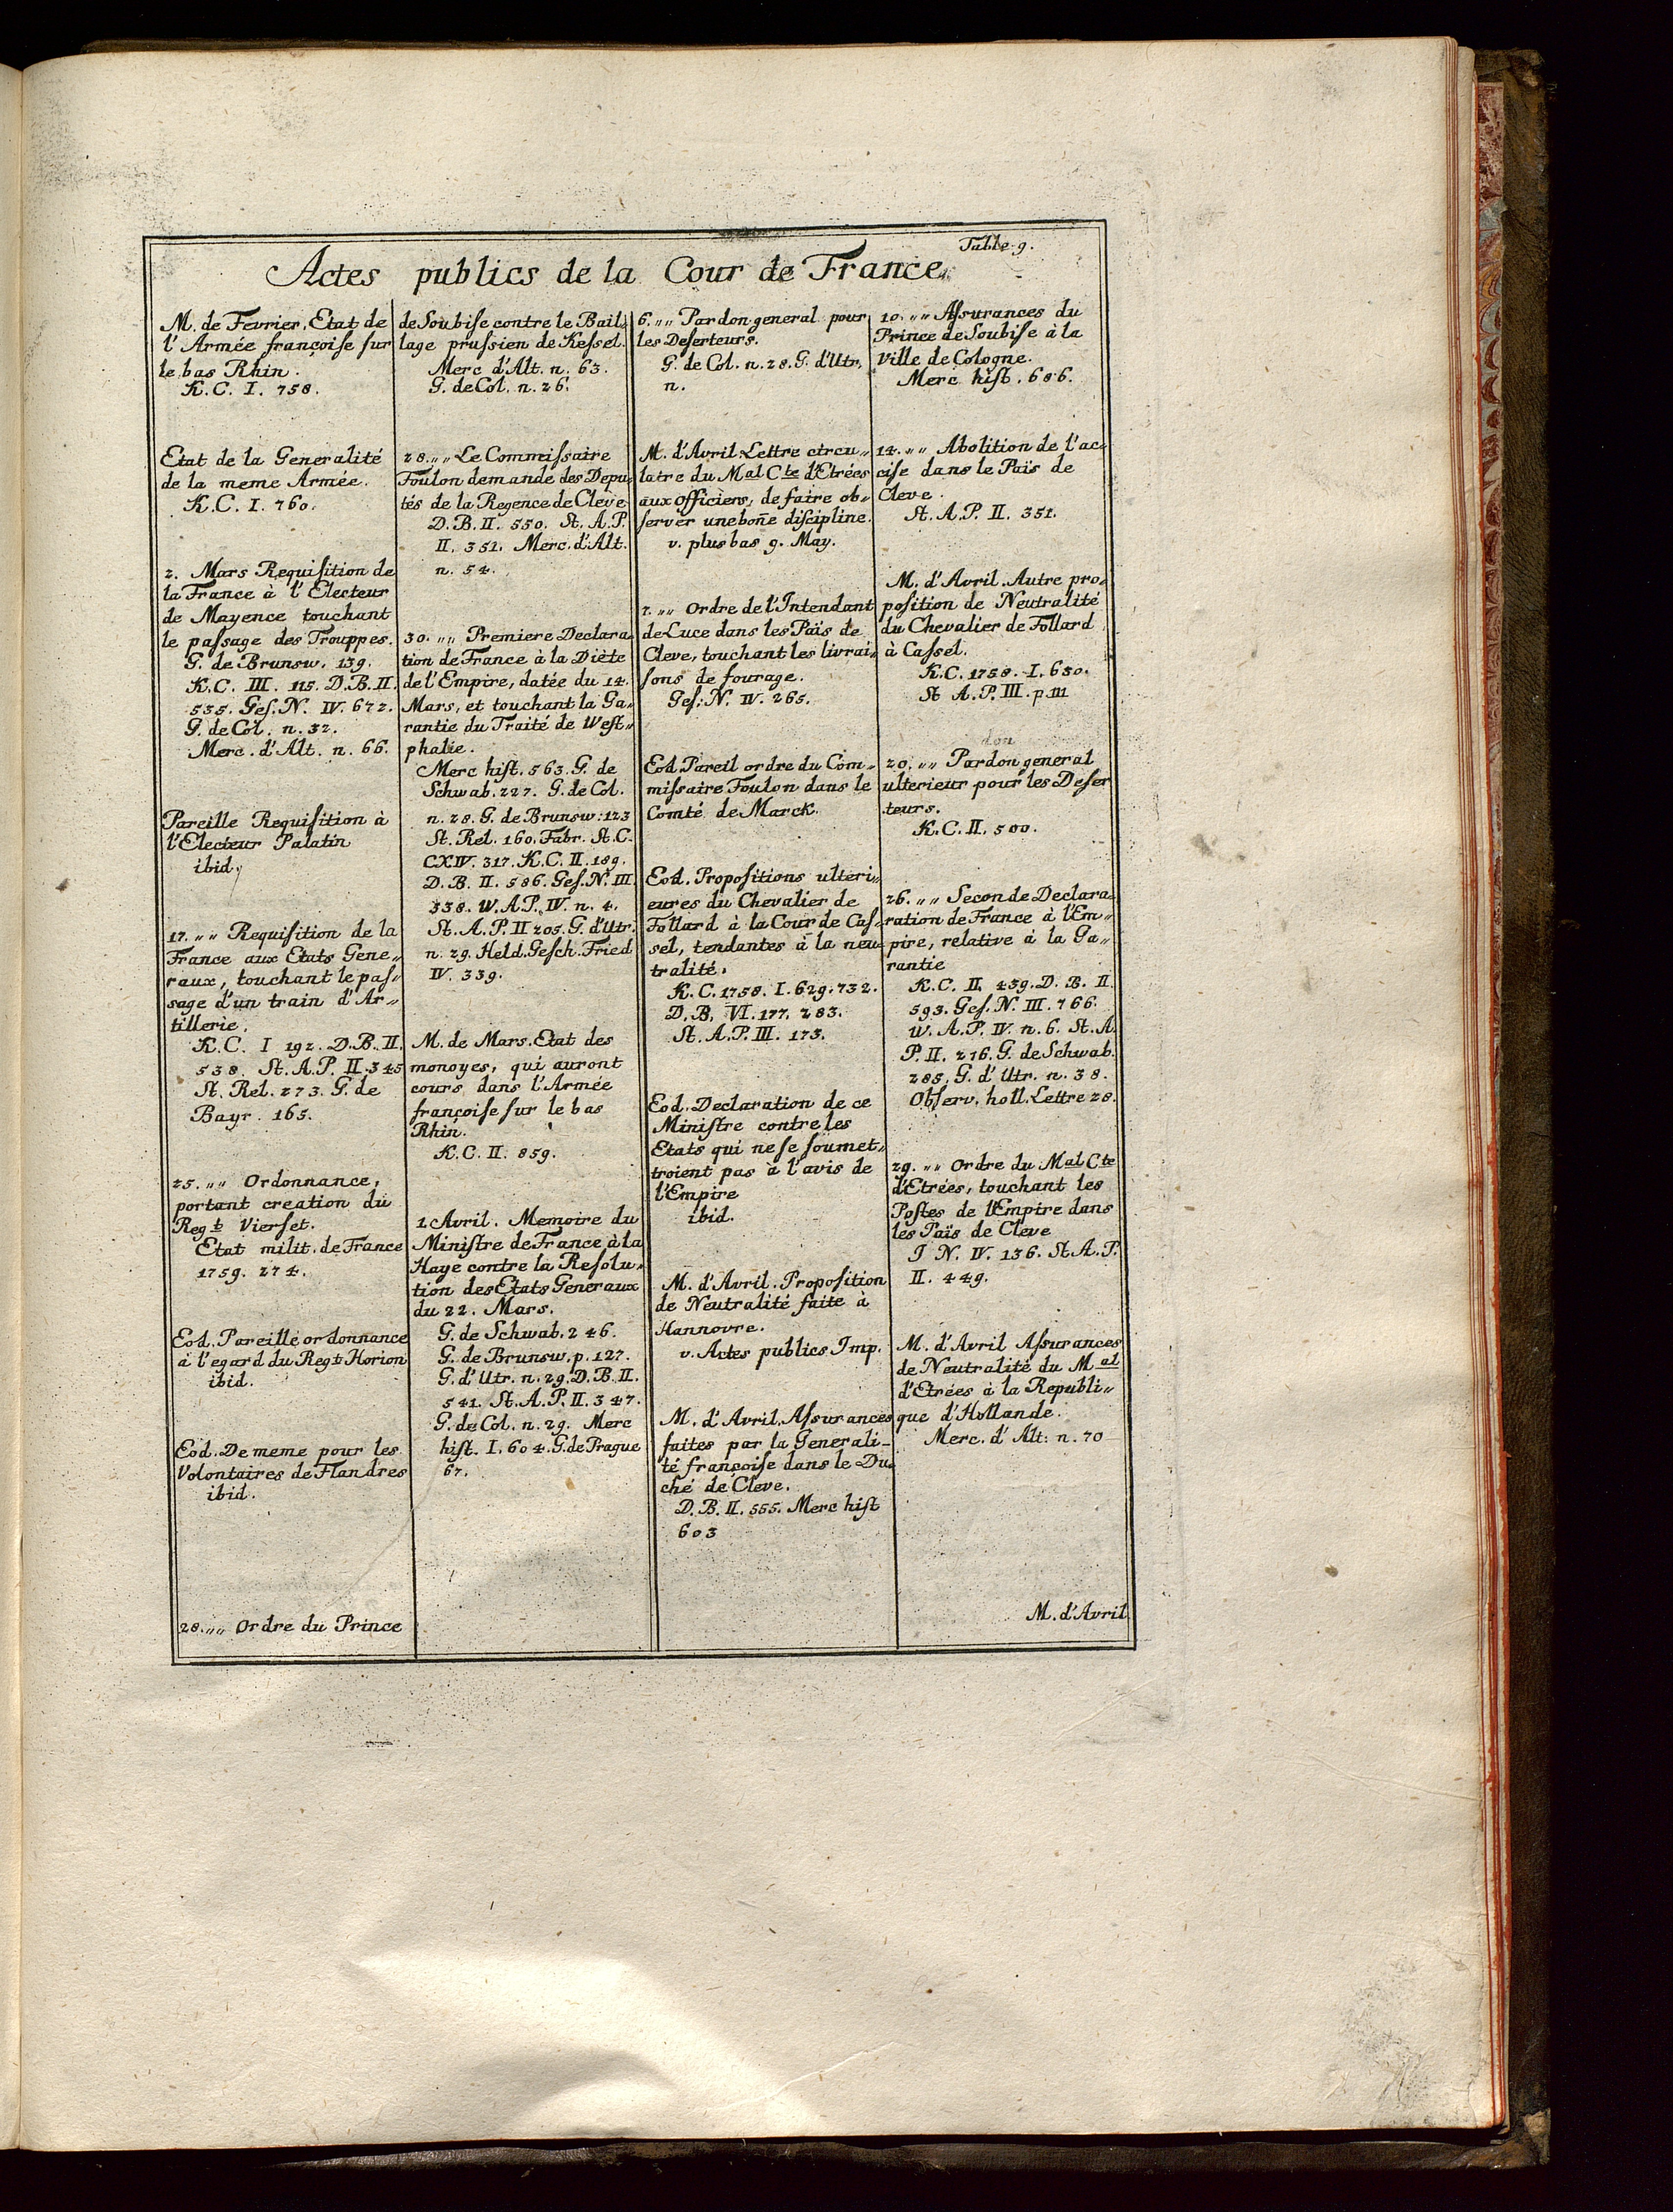 Table 9.
Actes publics de la Cour de France.
M. de Fevrier. Etat de
l'Armée françoiſe ſur
le bas Rhin.
K.C. I. 758.
Etat de la Generalité
de la meme Armée.
K.C. I. 760.
2. Mars Requiſition de
la France à l'Electeur
de Mayence touchant
le paſsage des Trouppes.
G. de Brunsw. 139.
K.C. III. 115. D.B. II.
535. Geſ. N. IV. 672.
G. de Col. n. 32.
Merc. d'Alt. n. 66.
Pareille Requiſition à
l'Electeur Palatin
ibid.
17. „„ Requiſition de la
France aux Etats Gene„
raux, touchant le paſ„
sage d'un train d'Ar„
tillerie.
K.C. I 192. D.B. II.
538. St. A.P. II. 345
St. Rel. 273. G. de
Bayr. 165.
25. „„ Ordonnance,
portant creation du
Regt. Vierset.
Etat milit. de France
1759. 274.
Eod. Pareille ordonnance
à l'egard du Regt. Horion
ibid.
Eod. De meme pour les
Volontaires de Flandres
ibid.
28. „„ Ordre du Prince
de Soubiſe contre le Bail„
lage pruſsien de Keſsel.
Merc d'Alt. n. 63.
G. de Col. n. 26.
28. „„ Le Commiſsaire
Foulon demande des Depu„
tés de la Regence de Cleve
D.B. II. 550. St. A.P.
II. 351. Merc. d'Alt.
n. 54.
30. „„ Premiere Declara„
tion de France à la Diète
de l'Empire, datée du 14.
Mars, et touchant la Ga„
rantie du Traité de Weſt„
phalie.
Merc hiſt. 563. G. de
Schwab. 227. G. de Col.
n. 28. G. de Brunsw: 123
St. Rel. 160. Fabr. St. C.
CXIV. 317. K.C. II. 189.
D.B. II. 586. Geſ. N. III.
338. W.A.P. IV. n. 4.
St. A.P. II 205. G. d'Utr.
n. 29. Held. Geſch. Fried
IV. 339.
M. de Mars. Etat des
monoyes, qui auront
cours dans l'Armée
françoiſe ſur le bas
Rhin.
K.C. II. 859.
1. Avril. Memoire du
Miniſtre de France à la
Haye contre la Reſolu„
tion des Etats Generaux
du 22. Mars.
G. de Schwab. 246.
G. de Brunsw. p. 127.
G. d'Utr. n. 29. D.B. II.
541. St. A.P. II. 347.
G. de Col. n. 29. Merc
hiſt. I. 604. G. de Prague
67.
6. „„ Pardon general pour
les Deſerteurs.
G. de Col. n. 28. G. d'Utr.
n.
M. d'Avril. Lettre circu„
laire du Mal Cte d'Etrées
aux Officiers, de faire ob„
ſerver une bon̄e diſcipline.
v. plus bas 9. May.
7. „„ Ordre de l'Intendant
de Luce dans les Païs de
Cleve, touchant les livrai„
ſons de fourage.
Geſ: N. IV. 265.
Eod. Pareil ordre du Com„
miſsaire Foulon dans le
Comté de Marck.
Eod. Propoſitions ulteri„
eures du Chevalier de
Follard à la Cour de Caſ„
sel, tendantes à la neu„
tralité.
K.C. 1758. I. 629. 732.
D.B. VI. 177. 283.
St. A.P. III. 173.
Eod. Declaration de ce
Miniſtre contre les
Etats qui ne ſe ſoumet„
troient pas à l'avis de
l'Empire
ibid.
M. d'Avril. Propoſition
de Neutralité faite à
Hannovre.
v. Actes publics Imp.
M. d'Avril. Aſsurances
faites par la Generali„
té françoiſe dans le Du„
ché de Cleve.
D.B. II. 555. Merc hiſt
603
10. „„ Aſsurances du
Prince de Soubiſe à la
Ville de Cologne.
Merc hiſt. 686.
14. „„ Abolition de l'ac„
ciſe dans le Païs de
Cleve.
St. A.P. II. 351.
M. d'Avril. Autre pro„
poſition de Neutralité
du Chevalier de Follard
à Caſsel.
K.C. 1758. I. 630.
St A.P. III. p. 111
don
20. „„ Pardon general
ulterieur pour les Deſer
teurs.
K.C. II. 500.
26. „„ Seconde Declara„
ration de France à l'Em„
pire, relative à la Ga„
rantie
K.C. II. 439. D.B. II.
593. Geſ. N. III. 766.
W.A.P. IV. n. 6. St. A.
P. II. 216. G. de Schwab.
285. G. d'Utr. n. 38.
Obſerv. holl. Lettre 28.
29. „„ Ordre du Mal Cte
d'Etrées, touchant les
Poſtes de l'Empire dans
les Païs de Cleve
J N. IV. 136. St. A.P.
II. 449.
M. d'Avril Aſsurances
de Neutralité du Mal
d'Etrées à la Republi„
que d'Hollande.
Merc. d'Alt: n. 70
M. d'Avril